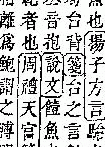 也揚子方言
台背箋台之言
也說文鮐魚
者也周禮天官
爲鮑謂之